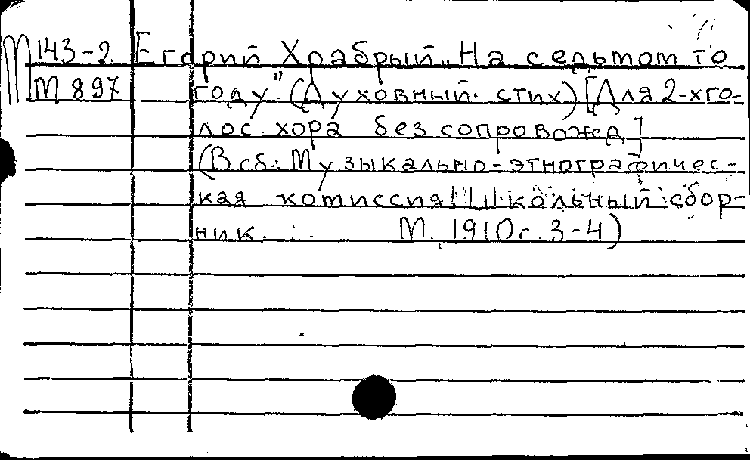 М 143-2 Егорий Храбрый „На седьмом то
М 897 году" (Духовный стих) [Для 2-хго-
лос. хора без сопровожд]
(В сб: Музыкально-этнографичес-
кая комиссия. Школьный сбор-
ник. М. 1910 с. 3-4)